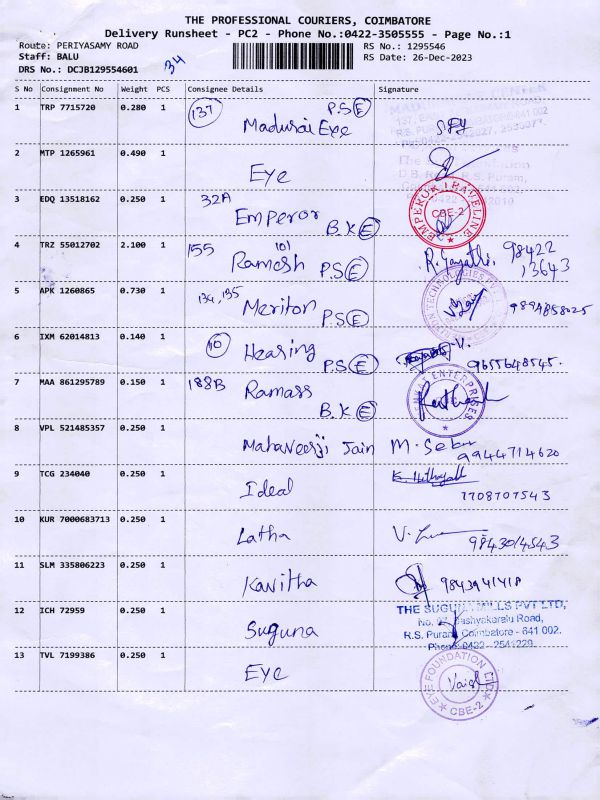 THE PROFESSIONAL COURIERS, COIMBATORE
Delivery Runsheet - PC2 - Phone No.:0422-3505555 - Page No.:1
Route: PERIYASAMY ROAD RS No.: 1295546
Staff: BALU RS Date: 26-Dec-2023
DRS No.: DCJB129554601 34
S No Consignment No Weight PCS Consignee Details Signature
1 TRP 7715720 0.280 1 137 P.S E
Madurai Eye
2 MTP 1265961 0.490 1
Eye
3 EDQ 13518162 0.250 1 32A
Emperor B.K E
EMPEROR TRAVELINE CBE-2
4 TRZ 55012702 2.100 1 155 101
Ramesh P.S E R. Gayathri 98422
13643
5 APK 1260865 0.730 1 134,135
Meriton P.S E
6 IXM 62014813 0.140 1 10
Hearing P.S E 9655648545.
7 MAA 861295789 0.150 1 188B
Ramass B.K E
ENTERPRISES
8 VPL 521485357 0.250 1
Mahaveerji Jain M. 9944714620
9 TCG 234040 0.250 1
Ideal
7708707543
10 KUR 7000683713 0.250 1
Latha V. 9843014543
11 SLM 335806223 0.250 1
Kavitha 9843941418
12 ICH 72959 0.250 1
Suguna
THE SUGUNA MILLS PVT LTD,
R.S. Puram, Coimbatore - 641 002.
Phone: 0422 - 2541229
13 TVL 7199386 0.250 1
Eye
EYE FOUNDATION LTD CBE-2